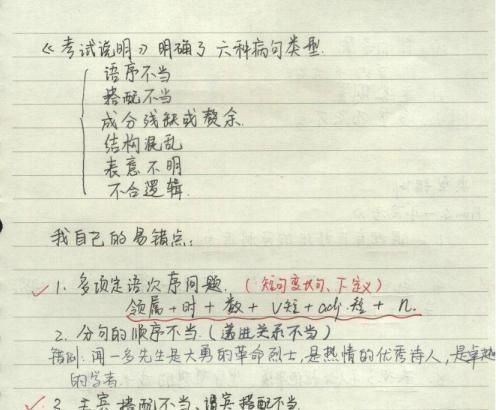 《考试说明》明确了六种病句类型.
语序不当
搭配不当
成分残缺或赘余.
结构混乱
表意不明
不合逻辑.
我自己的易错点:
✓ 1. 多项定语次序问题. (短句变长句、下定义)
领属+时+数+v短+adj.短+n.
2. 分句的顺序不当. (递进关系不当)
错例: 闻一多先生是大勇的革命烈士,是热情的优秀诗人,是卓越
的学者
✓ 3. 主宾搭配不当、谓宾搭配不当.